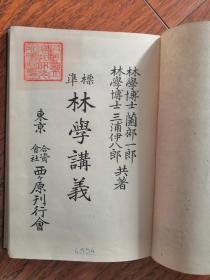 林學博士 薗部一郎
林學博士 三浦伊八郎 共著
標準 林學講義
東京 合資會社 西ヶ原刊行會
6554